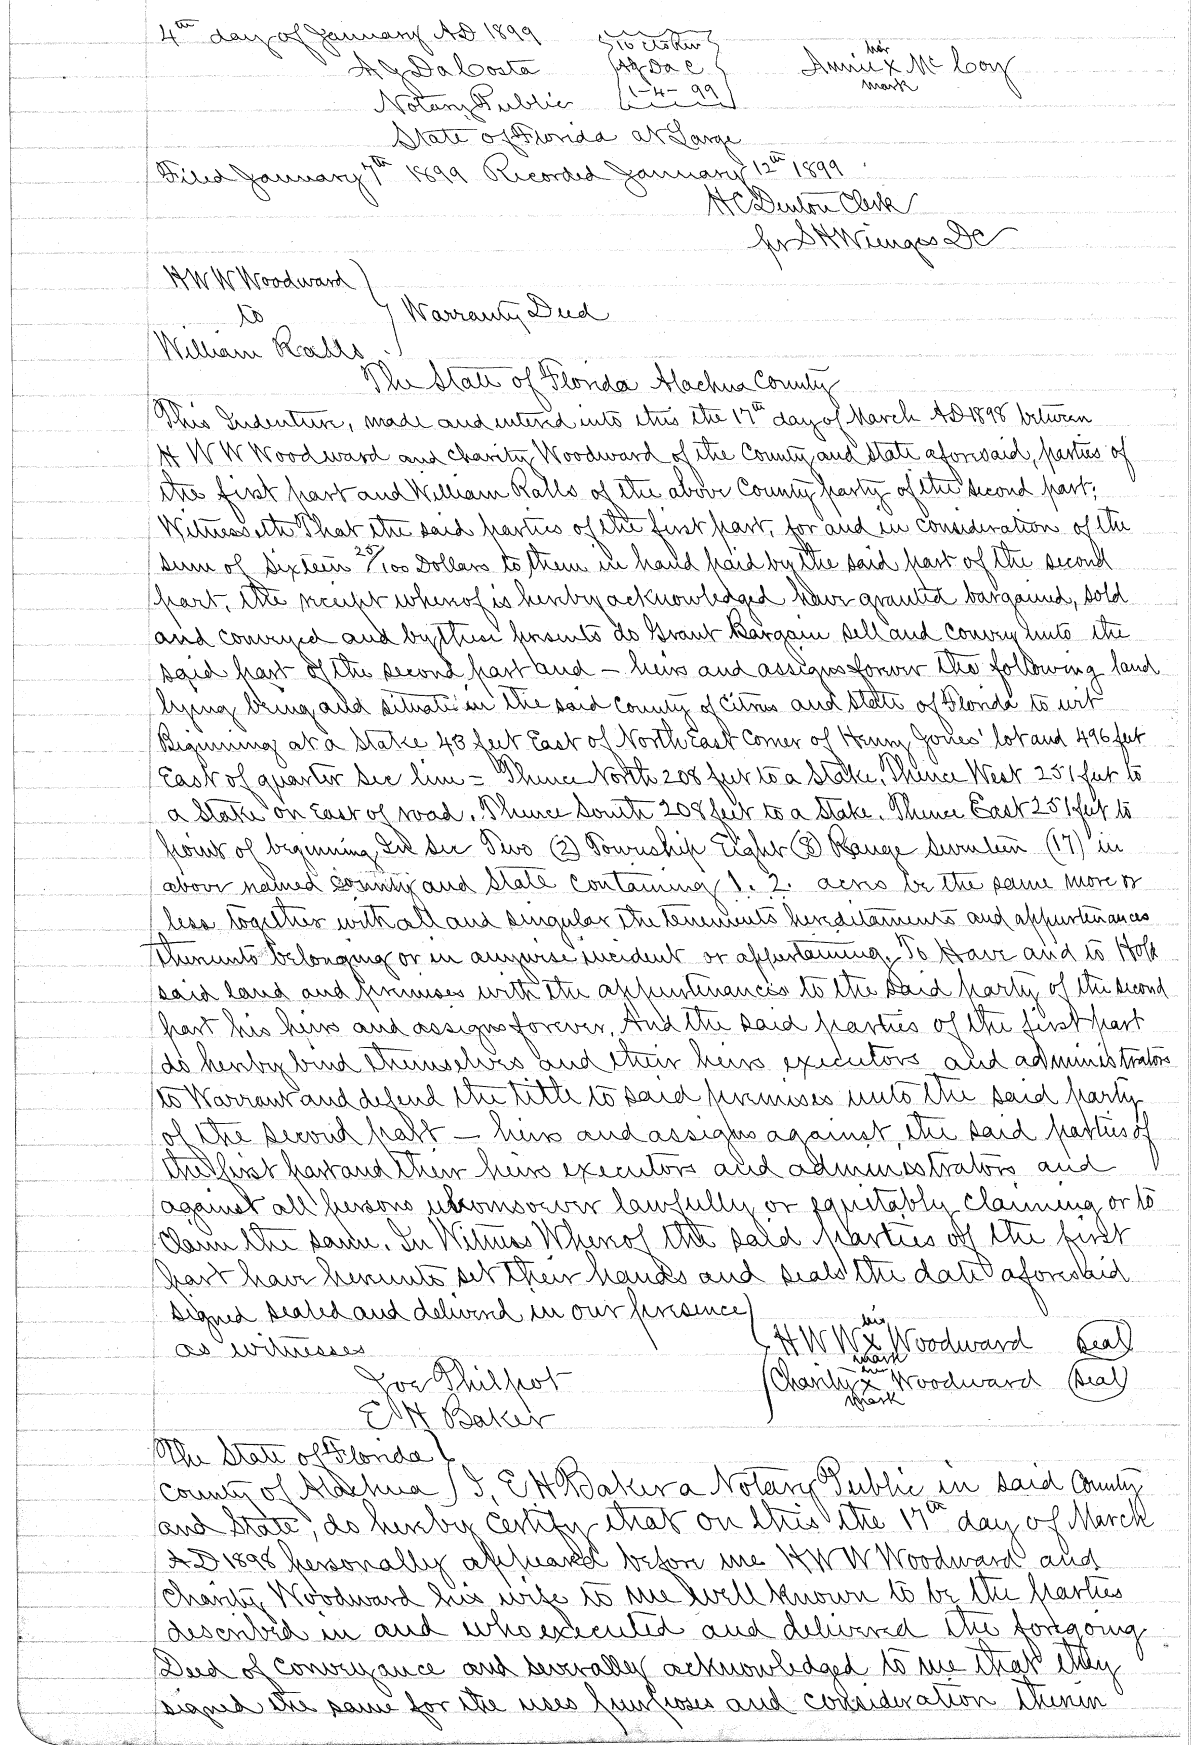 4th day of January AD 1899
A J DaCosta
Notary Public
State of Florida at Large
10 c Stamp
A J Da C
1-4-99
her
Annie x McCoy
mark
Filed January 7th 1899 Recorded January 12th 1899
H C Denton Clerk
pr S H Wienges DC
H W W Woodward
to
William Ralls
Warranty Deed
The State of Florida Alachua County
This Indenture, made and entered into this the 17th day of March AD 1898 between
H W W Woodward and Charity Woodward of the County and State aforesaid, parties of
the first part and William Ralls of the above County party of the second part;
Witnesseth That the said parties of the first part, for and in consideration of the
sum of sixteen 25/100 Dollars to them in hand paid by the said part of the second
part, the receipt whereof is hereby acknowledged have granted bargained, sold
and conveyed and by these presents do Grant Bargain sell and convey unto the
said part of the second part and — heirs and assigns forever the following land
lying being and situate in the said County of Citrus and State of Florida to wit
Beginning at a Stake 43 feet East of North East Corner of Henry Jones' lot and 496 feet
East of quarter Sec line = Thence North 208 feet to a Stake, Thence West 251 feet to
a Stake on East of road. Thence South 208 feet to a Stake. Thence East 251 feet to
point of beginning In Sec Two (2) Township Eight (8) Range Seventeen (17) in
above named County and State containing 1. 2. acres be the same more or
less together with all and singular the tenements hereditaments and appurtenances
thereunto belonging or in anywise incident or appertaining. To Have and to Hold
said land and premises with the appurtenances to the said party of the second
part his heirs and assigns forever. And the said parties of the first part
do hereby bind themselves and their heirs executors and administrators
to Warrant and defend the title to said premises unto the said party
of the second part — heirs and assigns against the said parties of
the first part and their heirs executors and administrators and
against all persons whomsoever lawfully or equitably claiming or to
Claim the same. In Witness Whereof the said parties of the first
part have hereunto set their hands and seals the date aforesaid
signed sealed and delivered in our presence
as witnesses
Joe Philpot
E H Baker
his
H W W x Woodward Seal
mark
her
Charity x Woodward Seal
mark
The State of Florida
County of Alachua I, E H Baker a Notary Public in said County
and State, do hereby certify that on this the 17th day of March
AD 1898 personally appeared before me H W W Woodward and
Charity Woodward his wife to me well known to be the parties
described in and who executed and delivered the foregoing
Deed of conveyance and severally acknowledged to me that they
signed the same for the uses purposes and consideration therein